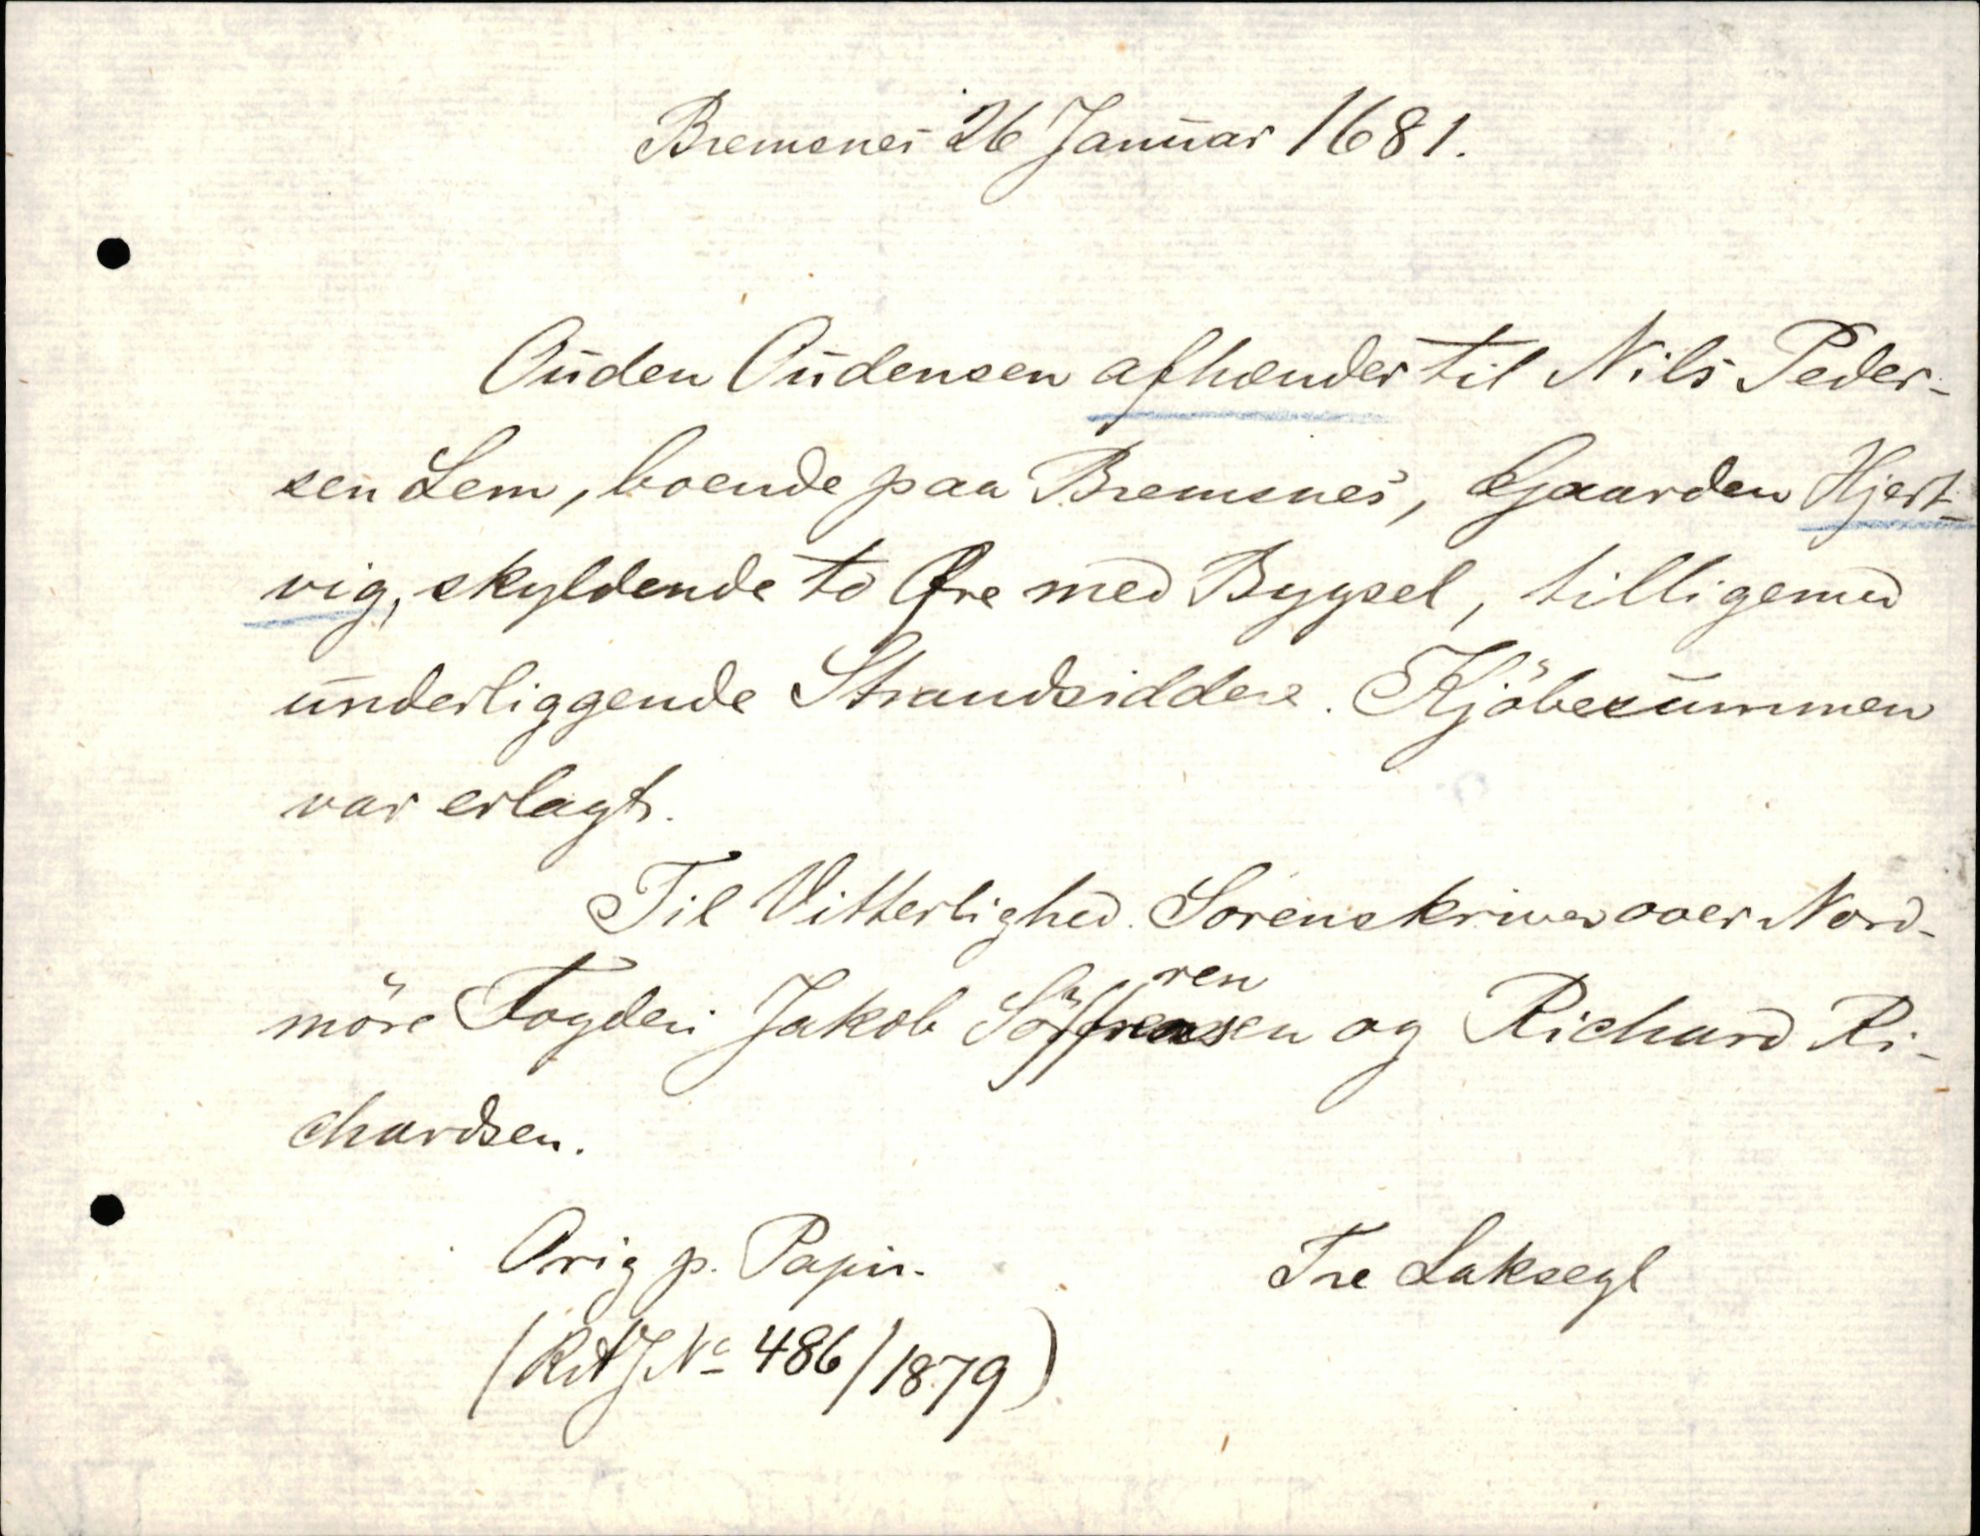 Bremsnes 26 Januar 1681.
Ouden Oudensen afhænder til Nils Peder-
sen Lem, boende paa Bremsnes, Gaarden Hjert-
vig, skyldende to Øre med Bygsel, tilligemed
underliggende Strandsiddere. Kjöbesummen
var erlagt.
Til Vitterlighed. Sorenskriver over Nord-
möre Fogderi Jakob Söffrensen og Richard Ri-
chardsen.
Orig p. Papir. Tre Laksegl
(RA J No 486/1879)